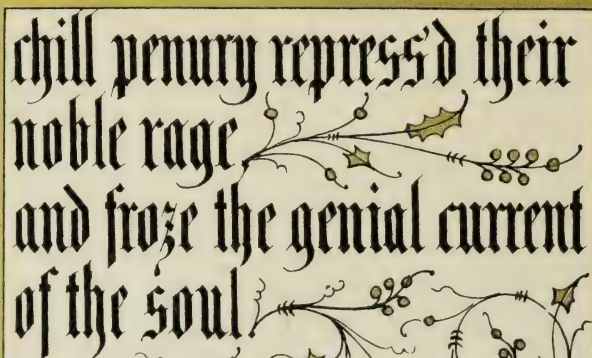 chill penury repress'd their
noble rage
and froze the genial current
of the soul.